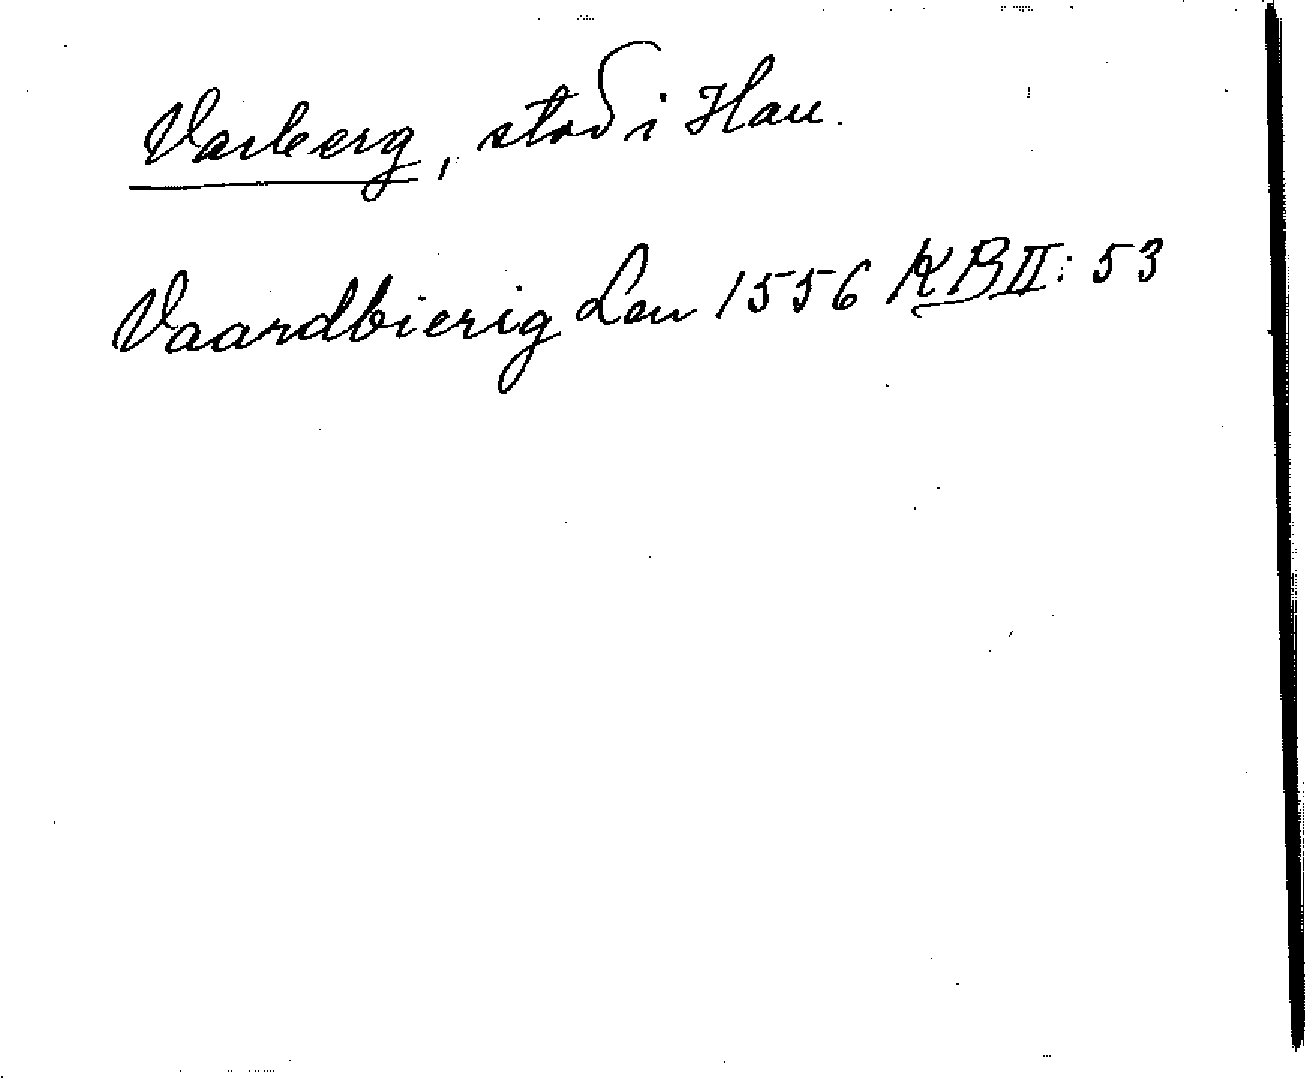 Varberg, stad i Hall.
Vaardbierig Len 1556 KB II: 53